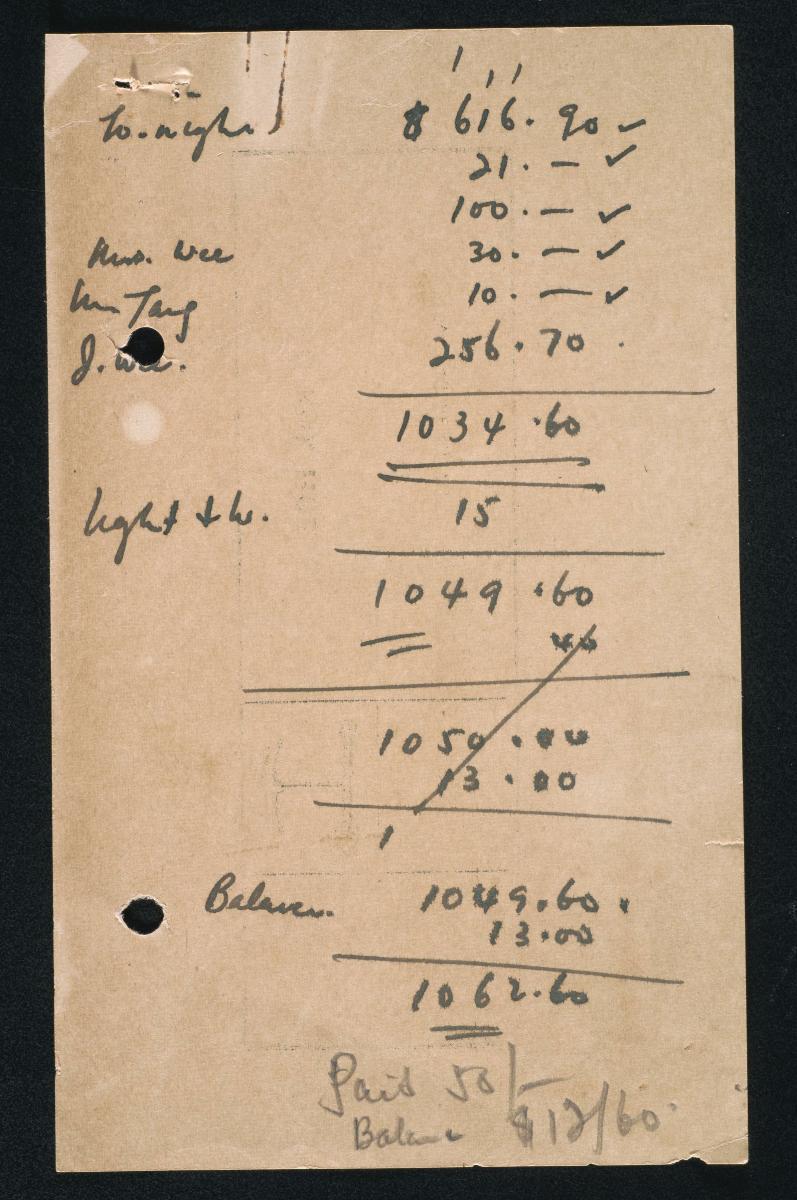 To.night $ 616. 90 ✓
21. — ✓
100. — ✓
Mrs. Wee 30. — ✓
Mr Tang 10. — ✓
J. Wee. 256. 70 .
1034 .60
light + W. 15
1049 .60
40
1050 .
13 . 00
1
Balance. 1049.60 .
13.00
1062.60
Paid 50/—
Balance $12/60.